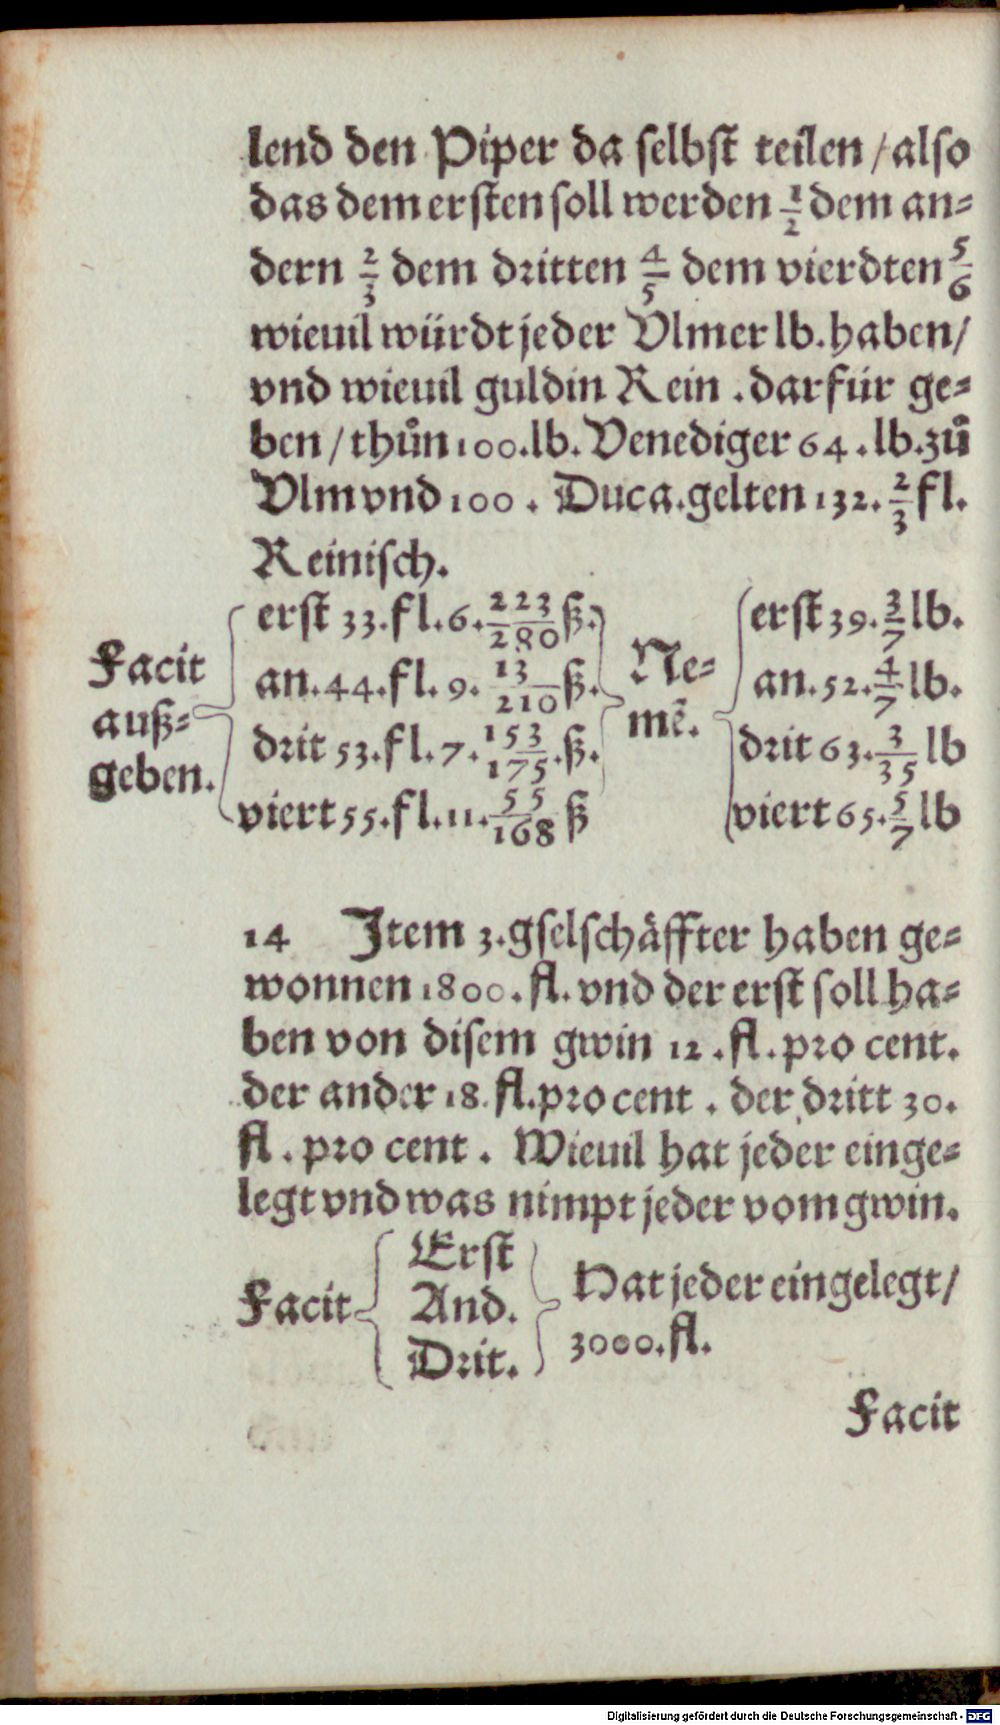 lend den Piper da selbst teilen / also
das dem ersten soll werden 1/2 dem an=
dern 2/3 dem dritten 4/5 dem vierdten 5/6
wieuil würdt jeder Vlmer lb. haben /
vnd wieuil guldin Rein . darfür ge=
ben / thůn 100. lb. Venediger 64 . lb. zů
Vlm vnd 100 . Duca. gelten 132. 2/3 fl.
Reinisch.
Facit
auß=
geben.
erst 33. fl. 6. 223/280 ß.
an. 44. fl. 9. 13/210 ß.
drit 53. fl. 7. 153/175 . ß.
viert 55. fl. 11. 55/168 ß
Ne=
mẽ.
erst 39. 3/7 lb.
an. 52. 4/7 lb.
drit 63. 3/35 lb
viert 65. 5/7 lb
14 Item 3. gselschåffter haben ge=
wonnen 1800. fl. vnd der erst soll ha=
ben von disem gwin 12 . fl. pro cent.
der ander 18. fl. pro cent . der dritt 30.
fl . pro cent . Wieuil hat jeder einge=
legt vnd was nimpt jeder vom gwin.
Facit
Erst
And.
Drit.
Hat jeder eingelegt /
3000. fl.
Facit
Digitalisierung gefördert durch die Deutsche Forschungsgemeinschaft - DFG